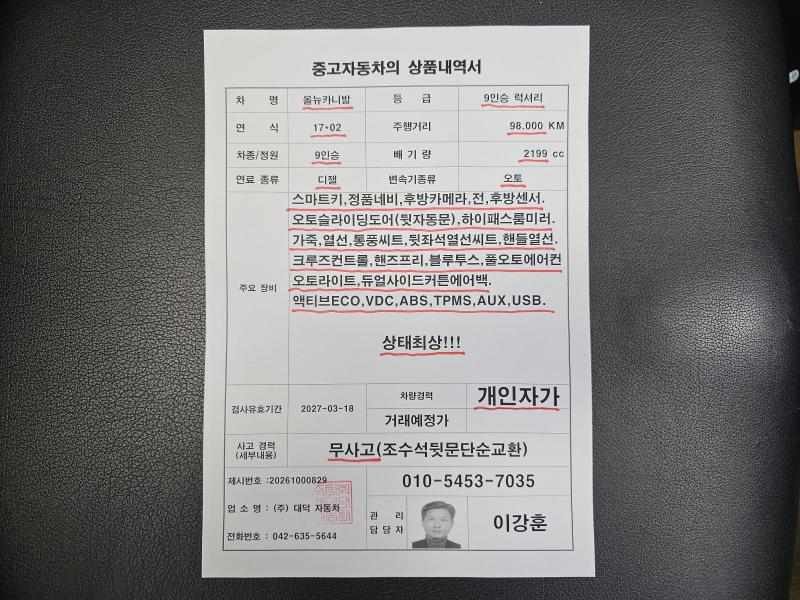 중고자동차의 상품내역서
차 명 올뉴카니발 등 급 9인승 럭셔리
연 식 17*02 주행거리 98.000 KM
차종/정원 9인승 배 기 량 2199 cc
연료 종류 디젤 변속기종류 오토
주요 장비
스마트키,정품네비,후방카메라,전,후방센서.
오토슬라이딩도어(뒷자동문),하이패스룸미러.
가죽,열선,통풍씨트,뒷좌석열선씨트,핸들열선.
크루즈컨트롤,핸즈프리,블루투스,풀오토에어컨
오토라이트,듀얼사이드커튼에어백.
액티브ECO,VDC,ABS,TPMS,AUX,USB.
상태최상!!!
검사유효기간 2027-03-18 차량경력 개인자가
거래예정가
사고 경력
(세부내용)
무사고(조수석뒷문단순교환)
제시번호 :20261000829
010-5453-7035
업 소 명 : (주) 대덕 자동차
전화번호 : 042-635-5644
관 리
담 당 자
이강훈